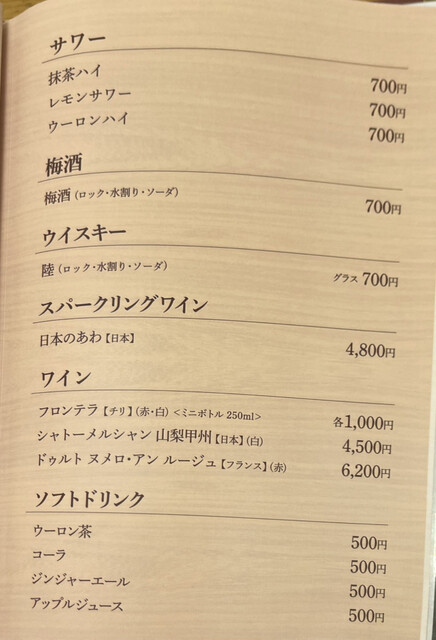 サワー
抹茶ハイ 700円
レモンサワー 700円
ウーロンハイ 700円
梅酒
梅酒(ロック・水割り・ソーダ) 700円
ウイスキー
陸(ロック・水割り・ソーダ) グラス 700円
スパークリングワイン
日本のあわ【日本】 4,800円
ワイン
フロンテラ【チリ】(赤・白)<ミニボトル 250ml> 各1,000円
シャトーメルシャン 山梨甲州【日本】(白) 4,500円
ドゥルト ヌメロ・アン ルージュ【フランス】(赤) 6,200円
ソフトドリンク
ウーロン茶 500円
コーラ 500円
ジンジャーエール 500円
アップルジュース 500円